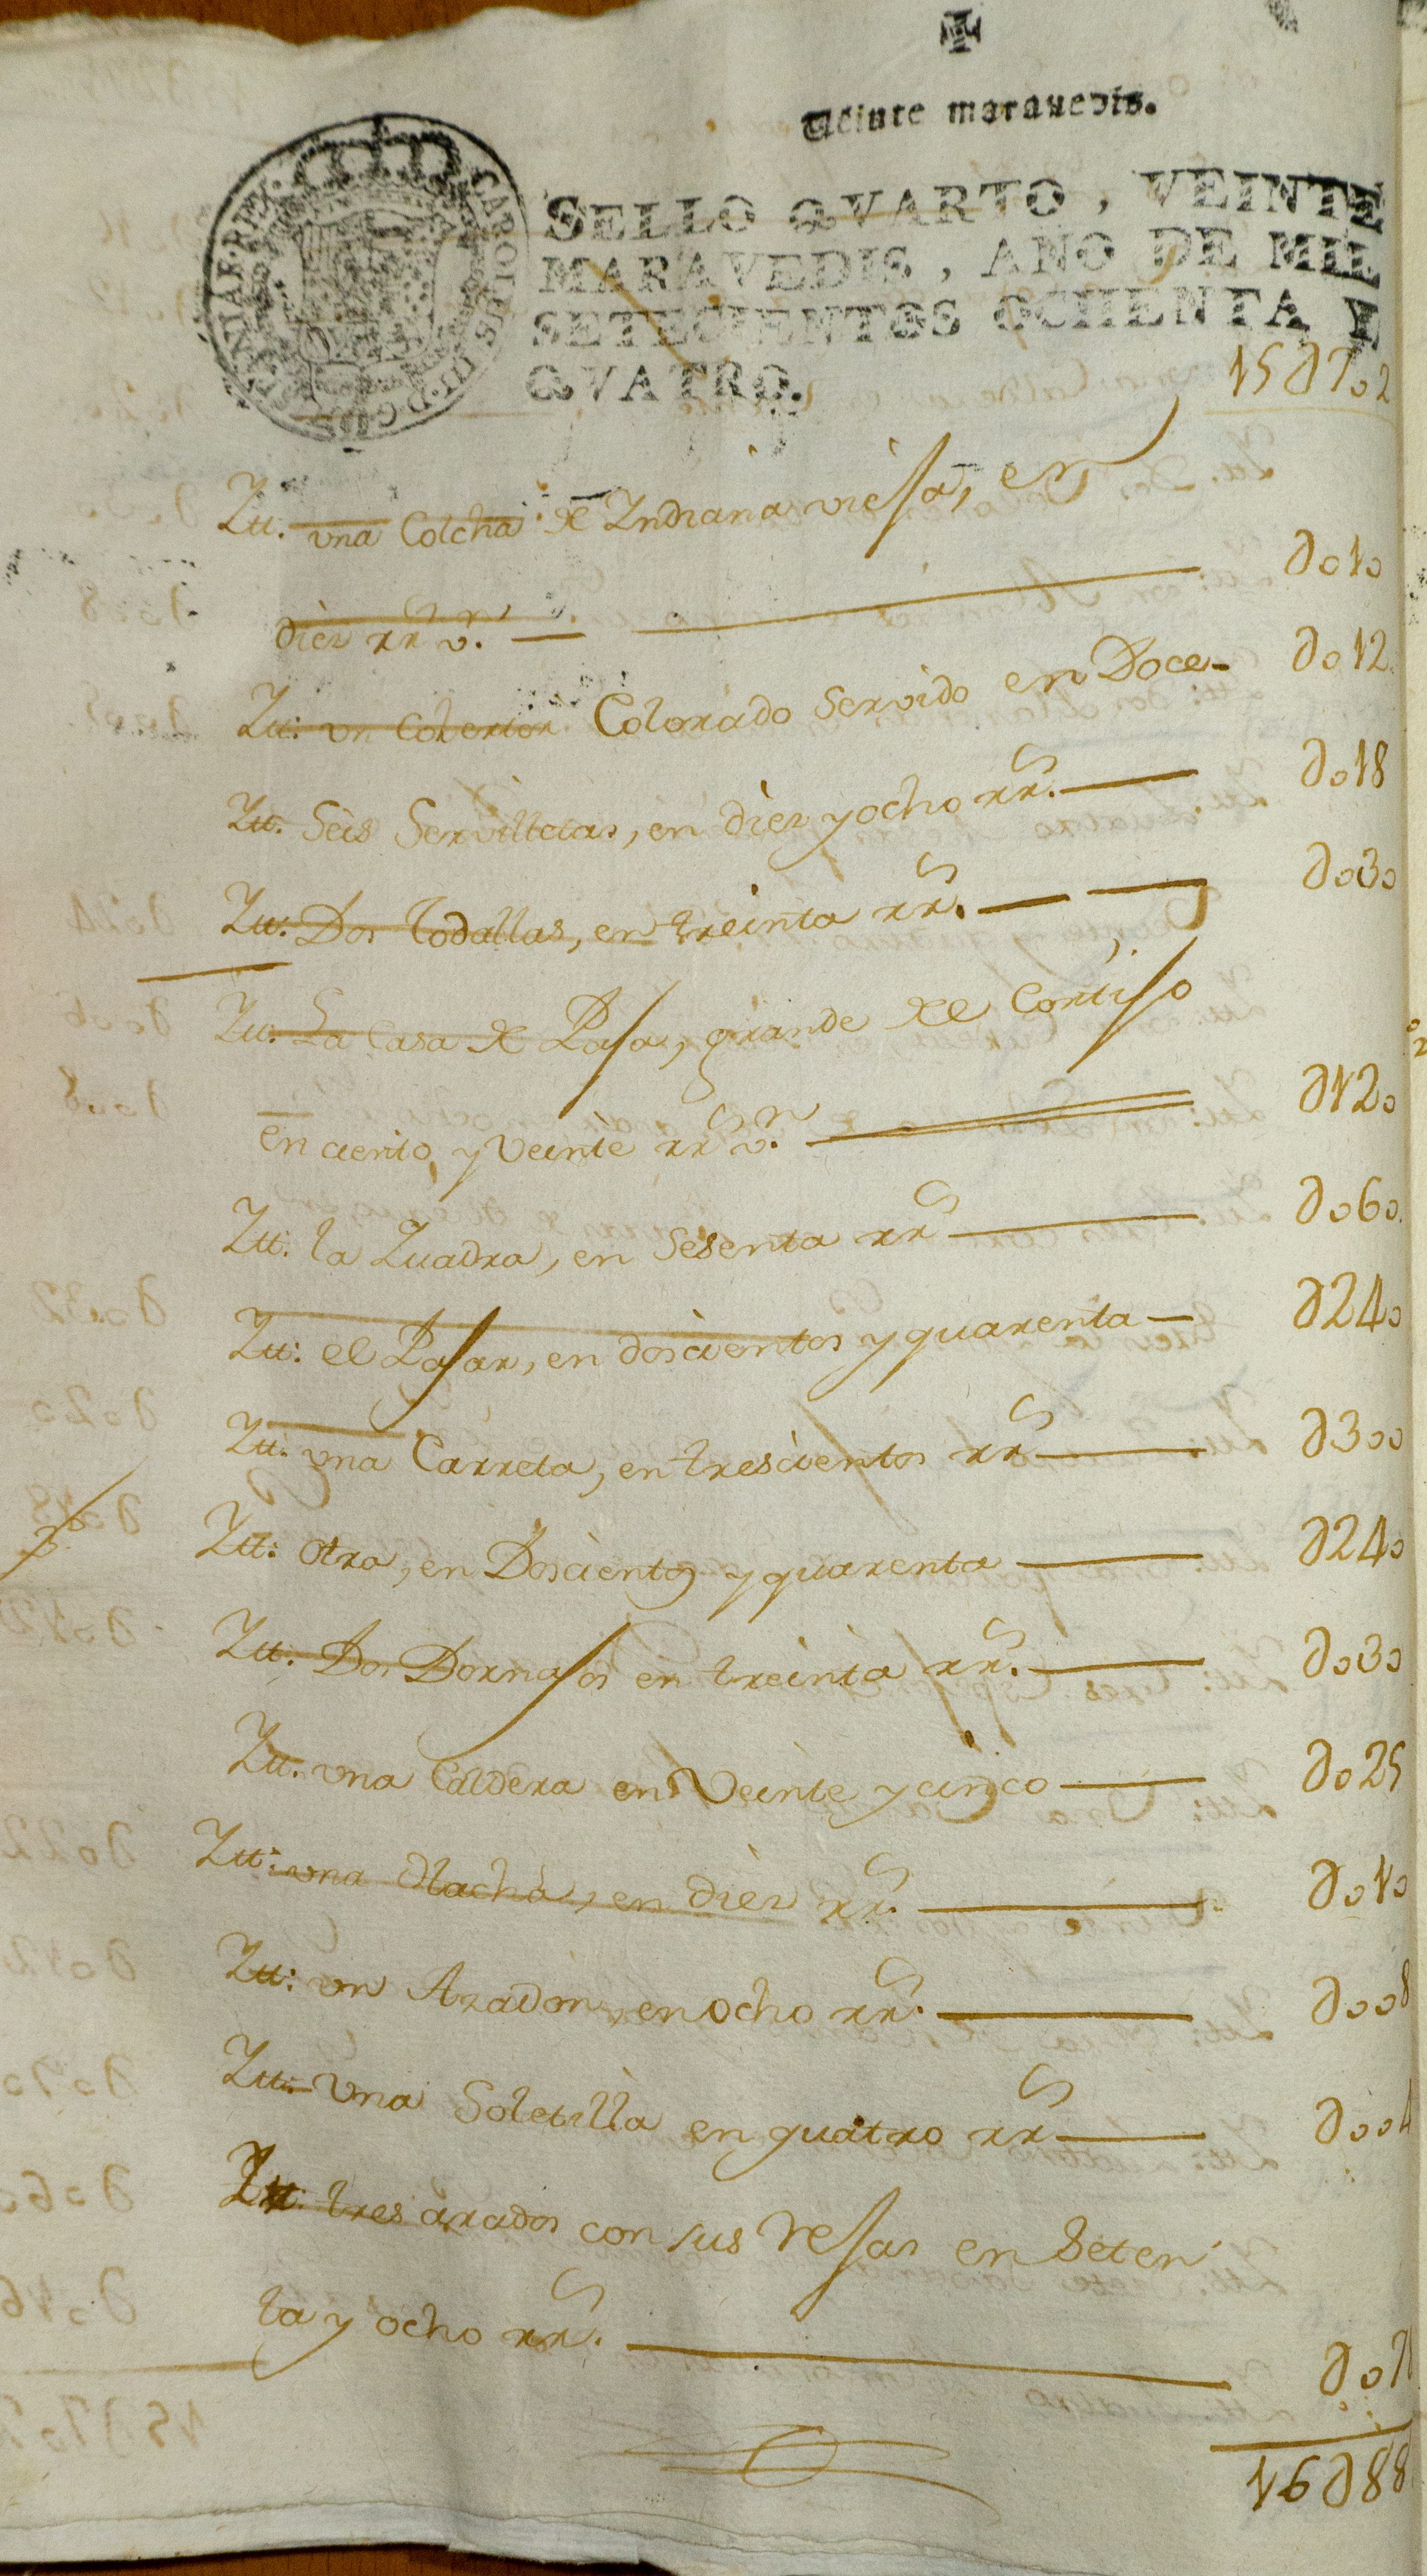 Veinte maravedis.
SELLO QVARTO, VEINTE
MARAVEDIS, AÑO DE MIL
SETECIENTOS OCHENTA Y
QVATRO.
CAROLUS III D G
HISPANIAR REX
15 ∂ 702
Itt. vna Colcha de Indiana viefa, en
diez rrs vn. ∂010
Itt: vn Coberton Colorado Servido en Doce ∂012
Itt. Seis Servilletas, en diez y ocho rrs. ∂018
Itt: Dos todallas, en treinta rrs. ∂030
Itt: La Casa de Pafa, grande del Cortifo
en ciento, y veinte rrs vn. ∂120
Itt. la Zuadra, en Sesenta rrs ∂060
Itt: el Pafar, en doscientos y quarenta ∂240
Itt. vna Carreta, en trescientos rrs ∂300
Itt: otra, en Doscientos y quarenta ∂240
Itt. Dos Dornafos en treinta rrs. ∂030
Itt. vna Caldera en Veinte y cinco ∂025
Itt: vna Hacha, en diez rrs. ∂010
Itt: vn Azadon, en ocho rrs. ∂008
Itt: Vna Soletilla en quatro rrs ∂004
Itt. tres arados con sus Refas en Seten
ta y ocho rrs. ∂07
16 ∂ 88